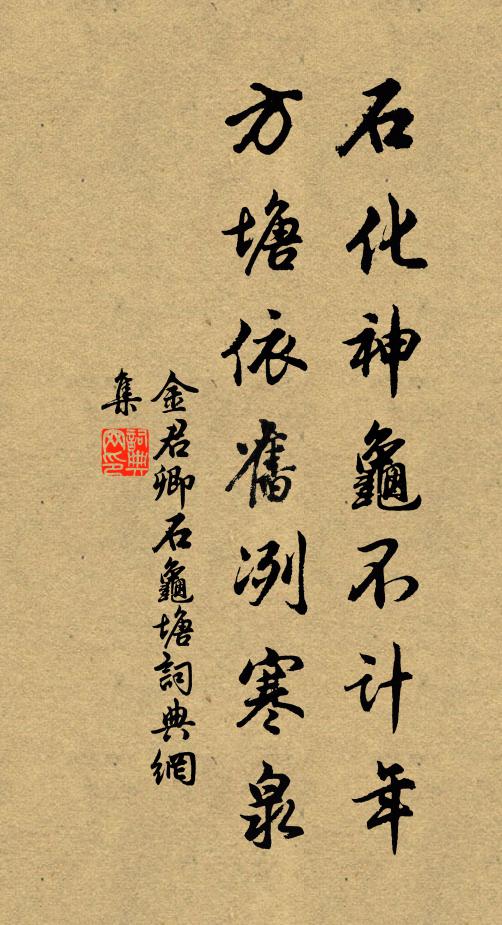 石化神龜不計年
方塘依舊冽寒泉
金君卿石龜塘詞典網
集
詞典
网印